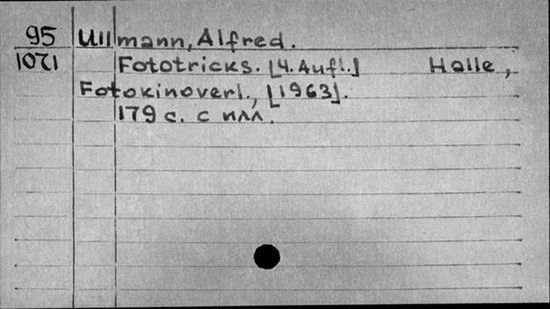 95 Ullmann, Alfred.
1071 Fototricks. [4. Aufl.] Halle,
Fotokinoverl., [1963].
179 с. с илл.